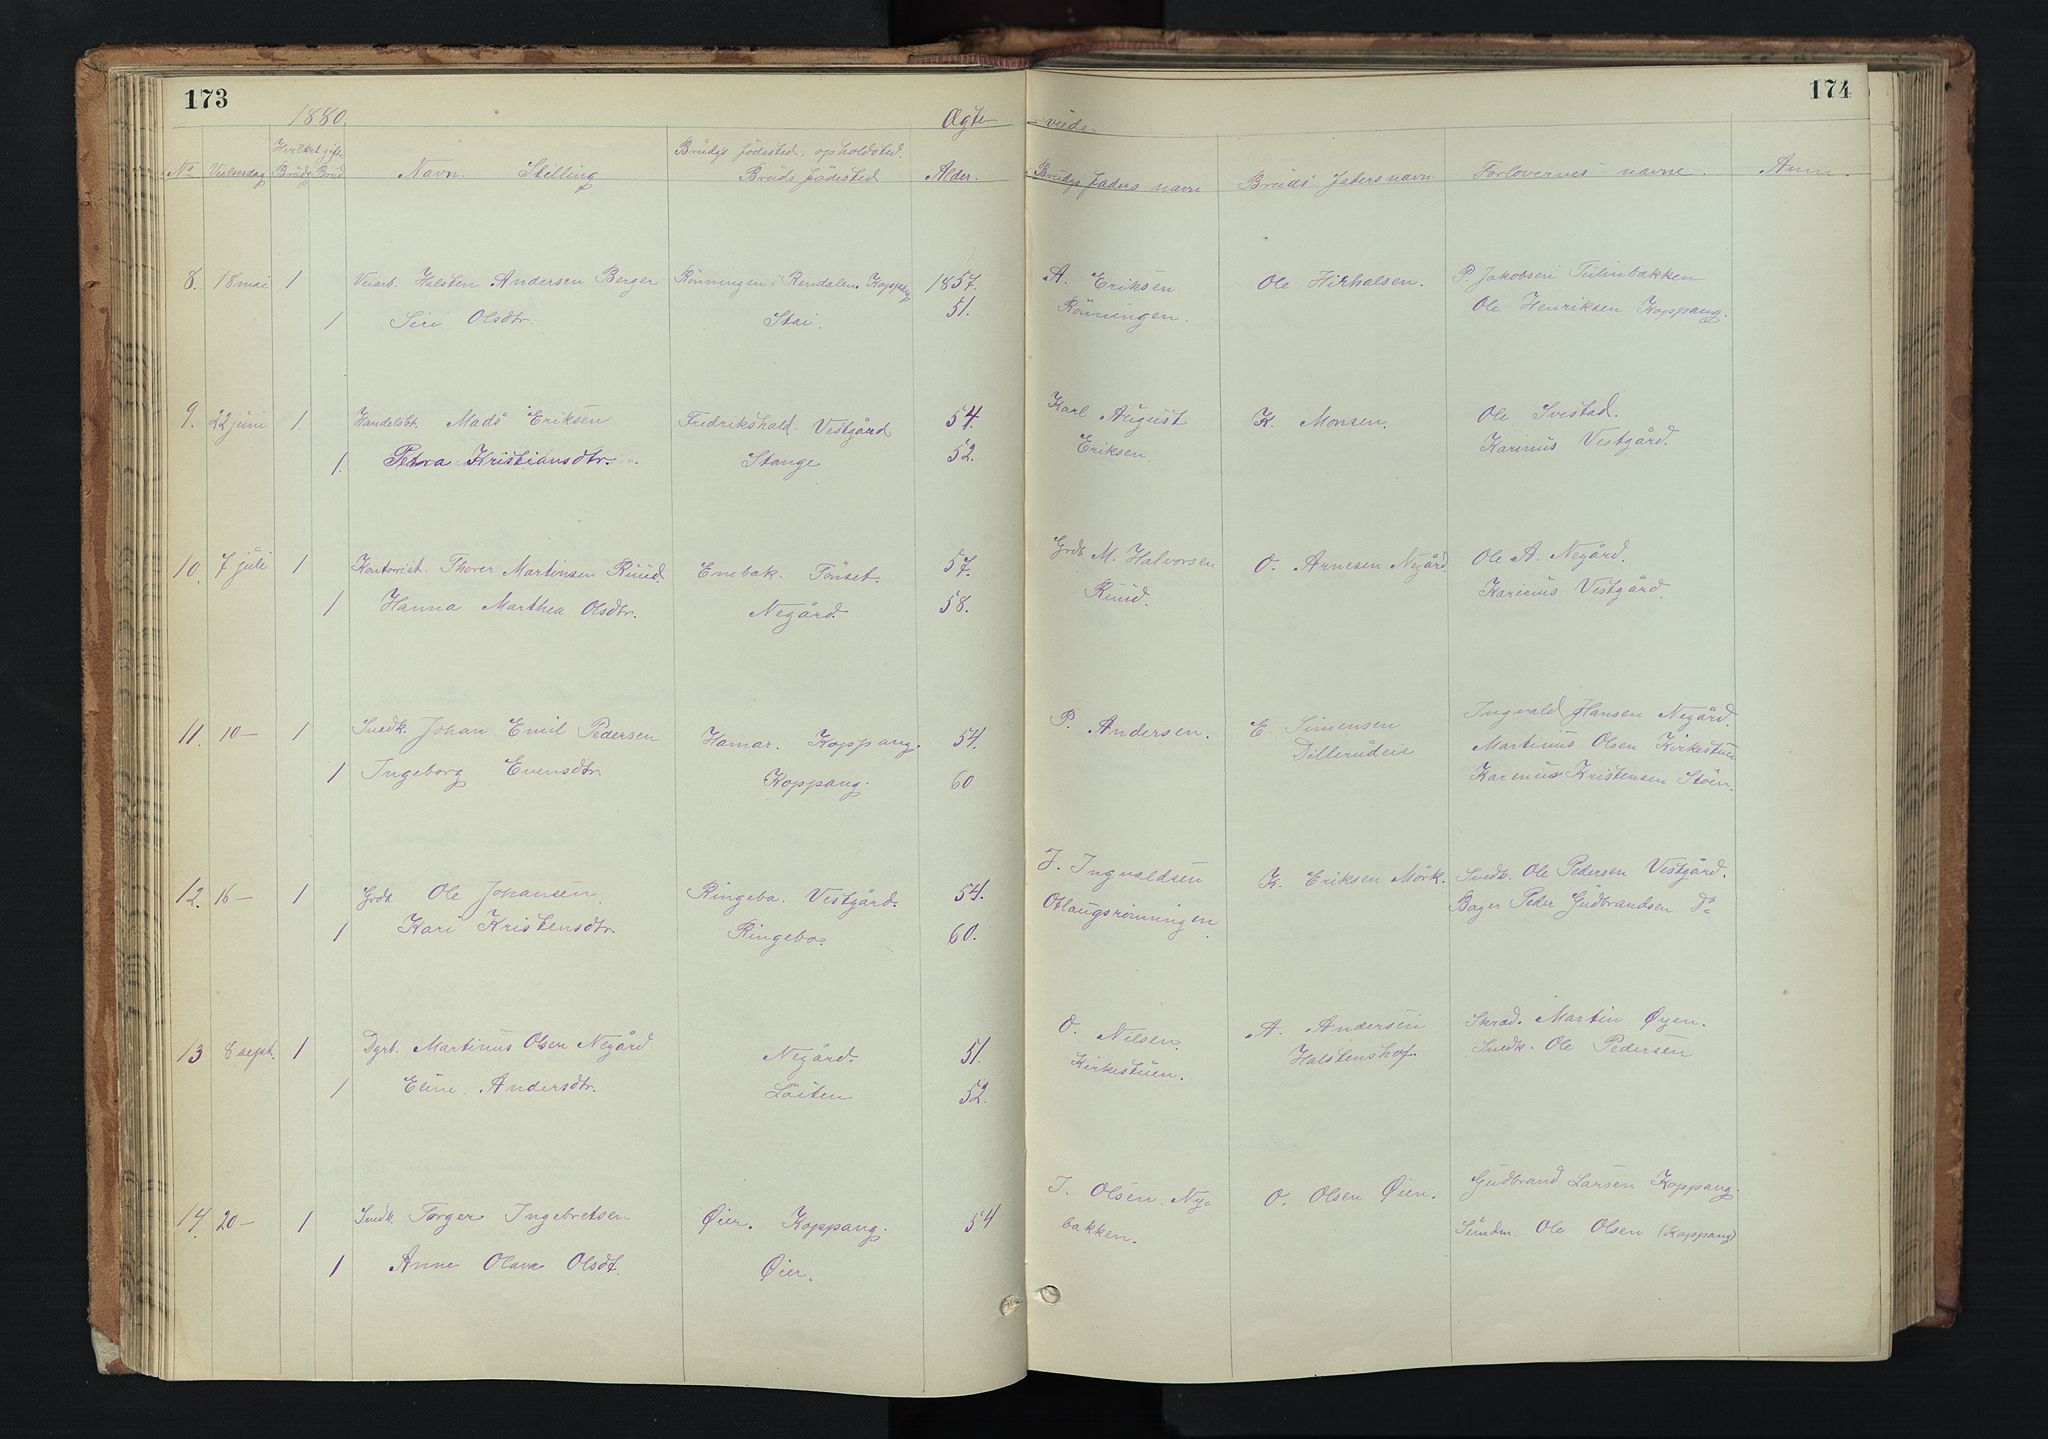 173
1880
Ægte-
viede.
174
No Vielsesdag Hvilket gifte Brudg Brud Navn. Stilling Brudgs fødested, opholdsted. Bruds fødested Alder. Brudgs faders navn Bruds faders navn Forlovernes navne. Anm.
8. 18 mai 1 Veiarb. Halsten Andersen Berger Rönningen i Rendalen. Koppang 1857. A. Eriksen Ole Hirhalsen. P. Jakobsen Tulinbakken
1 Siri Olsdtr. Stai. 51. Rönningen. Ole Henriksen Koppang.
9. 22 juni 1. Handelsbt. Mads Eriksen Fredrikshald. Vestgård 54. Karl August K. Monsen. Ole Svestad.
1. Petra Kristiansdtr. Stange 52. Eriksen. Karinus Vestgård.
10. 7 juli 1 Kontorist. Thorer Martinsen Ruud Enebak. Tönset. 57. Grdb M. Halvorsen O. Arnesen Negård Ole A. Negård.
1 Hanna Marthea Olsdtr. Negård. 58. Ruud. Karinus Vestgård.
11. 10 — 1 Snedk. Johan Emil Pedersen Hamar. Koppang. 54. P. Andersen. E. Simensen Ingvald Hansen Negård.
Dillerudeie Martinus Olsen Kirkestuen
1 Ingeborg Evensdtr. Koppang. 60 Karenus Kristensen Stöen.
12. 16 — 1 Grdb. Ole Johansen. Ringebo. Vestgård. 54. J. Ingvaldsen K. Eriksen Mörk. Snedk. Ole Pedersen Vestgård.
1 Kari Kristensdtr. Ringebo. 60. Otlaugsrönningen Bager Peder Gudbrandsen Do
13 8 sept. 1 Dgrb. Martinus Olsen Negård Negård. 51. O. Nilsen. A. Andersen Skræd. Martin Øyen.
1 Eline Andersdtr. Löiten 52. Kirkestuen. Halstenshof. Snedk. Ole Pedersen
14. 20 — 1 Snedk Torger Ingebretsen Øier. Koppang. 54 I. Olsen Ny- O. Olsen Øien. Gudbrand Larsen Koppang.
1 Anne Olava Olsdt. Øier. bakken. Ole Olsen (Koppang)